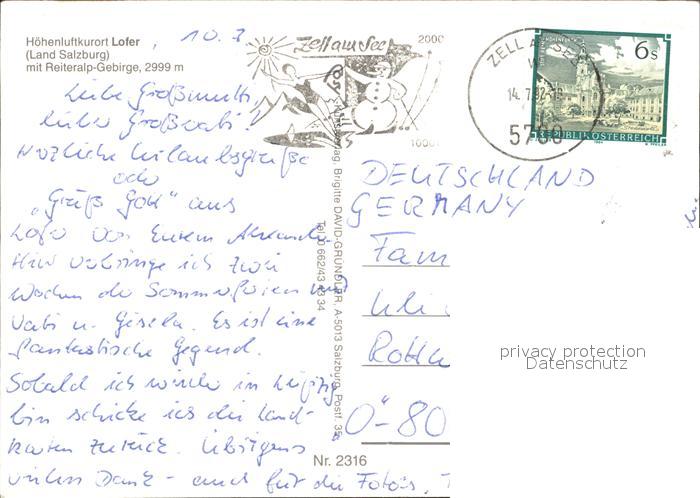 Höhenluftkurort Lofer
(Land Salzburg)
mit Reiteralp-Gebirge, 2999 m
10.7.
Liebe Großmutti,
lieber Großvati!
Herzliche Urlaubsgrüße
oder
"Grüß Gott" aus
Lofer von Eurem Alexander.
Hier verbringe ich zwei
Wochen der Sommerferien mit
Vati u. Gisela. Es ist eine
fantastische Gegend.
Sobald ich wieder in Leipzig
bin schicke ich die Land-
karten zurück. Übrigens
vielen Dank - auch für die Fotos,
Zell am See
2000
ZELL AM SEE
14.7.92
5700
6 S
REPUBLIK ÖSTERREICH
Verlag: Brigitte DAVID-GRÜNDLER, A-5013 Salzburg, Postf. 35
DEUTSCHLAND
GERMANY
Fam
O-80
Nr. 2316
privacy protection
Datenschutz